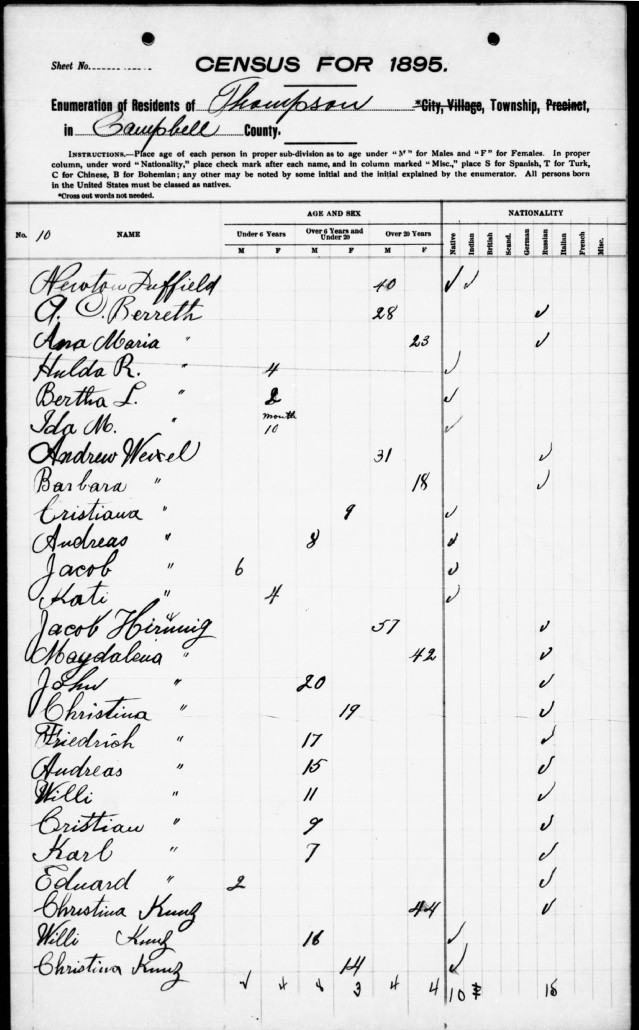 Sheet No.
CENSUS FOR 1895.
Enumeration of Residents of Thompson *City, Village, Township, Precinct,
in Campbell County.
INSTRUCTIONS.—Place age of each person in proper sub-division as to age under "M" for Males and "F" for Females. In proper
column, under word "Nationality," place check mark after each name, and in column marked "Misc.," place S for Spanish, T for Turk,
C for Chinese, B for Bohemian; any other may be noted by some initial and the initial explained by the enumerator. All persons born
in the United States must be classed as natives.
*Cross out words not needed.
AGE AND SEX NATIONALITY
No. 10 NAME Under 6 Years Over 6 Years and Under 20 Over 20 Years Native Indian British Scand. German Russian Italian French Misc.
M F M F M F
Newton Duffield 40 ✓ ✓
A. C. Berreth 28 ✓
Ana Maria " 23 ✓
Hulda R. " 4 ✓
Bertha L. " 2 ✓
month
Ida M. " 10 ✓
Andrew Weixel 31 ✓
Barbara " 18 ✓
Cristiana " 9 ✓
Andreas " 8 ✓
Jacob " 6 ✓
Kati " 4 ✓
Jacob Hirnnig 57 ✓
Maydalena " 42 ✓
John " 20 ✓
Christina " 19 ✓
Friedrich " 17 ✓
Andreas " 15 ✓
Willi " 11 ✓
Cristian " 9 ✓
Karl " 7 ✓
Eduard " 2 ✓
Christina Kunz 44 ✓
Willi Kunz 16 ✓
Christina Kunz 14 ✓
4 8 3 4 4 10 15